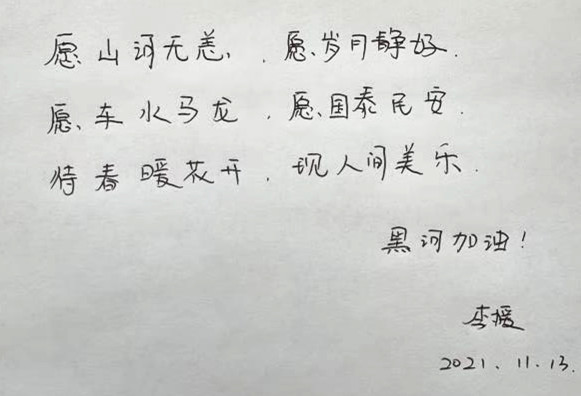 愿山河无恙，愿岁月静好.
愿车水马龙，愿国泰民安.
待春暖花开，现人间美乐.
黑河加油！
李媛
2021.11.13.